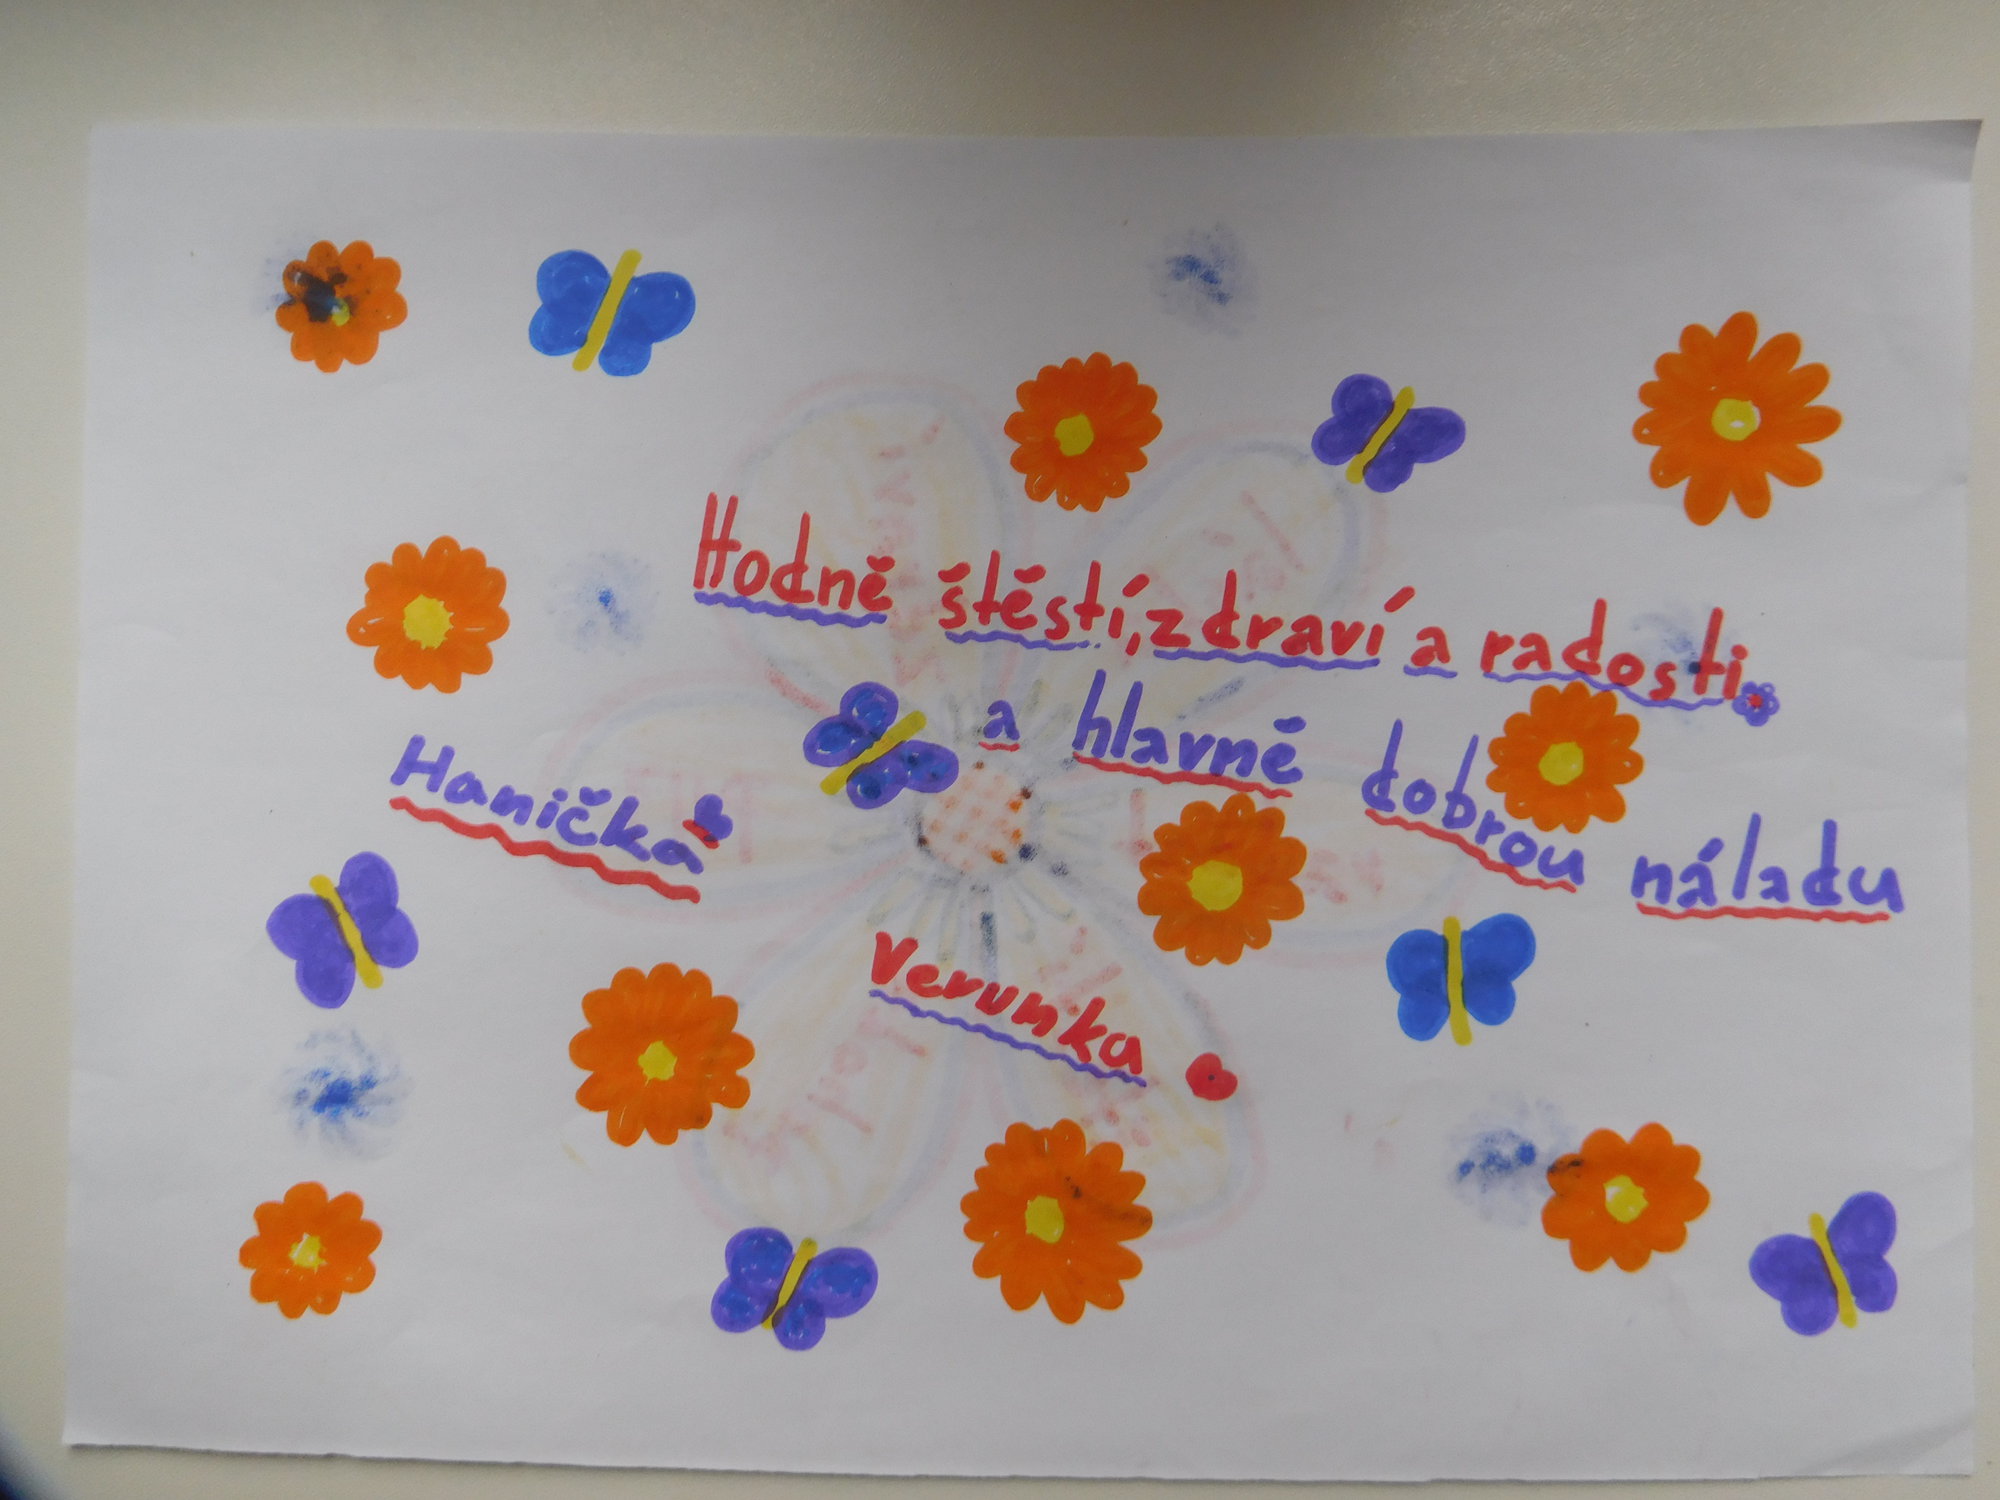 Hodně štěstí, zdraví a radosti
a hlavně dobrou náladu
Hanička
Verunka